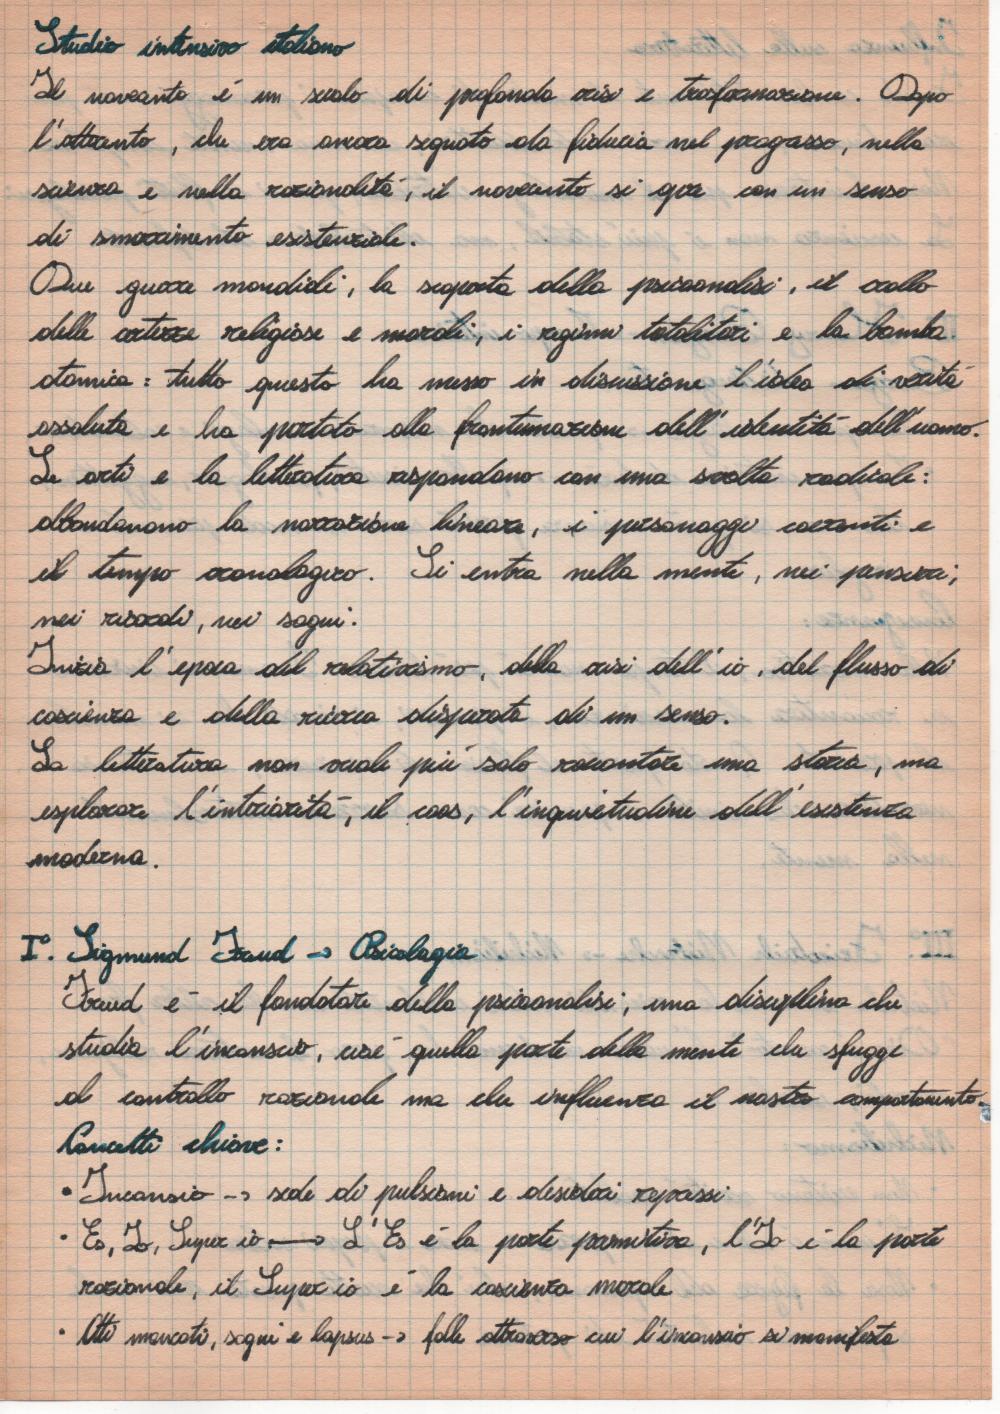 Studio intensivo italiano
Il novecento é un secolo di profonda crisi e trasformazione. Dopo
l'ottocento, che era ancora segnato da fiducia nel progresso, nella
scienza e nella razionalità, il novecento si apre con un senso
di smarrimento esistenziale.
Due guerre mondiali, la scoperta della psicoanalisi, il crollo
delle certezze religiose e morali, i regimi totalitari e la bomba
atomica: tutto questo ha messo in discussione l'idea di verità
assoluta e ha portato alla frantumazione dell'identità dell'uomo.
Le arti e la letteratura rispondono con una svolta radicale:
abbandonano la narrazione lineare, i personaggi coerenti e
il tempo cronologico. Si entra nella mente, nei pensieri,
nei ricordi, nei sogni.
Inizia l'epoca del relativismo, della crisi dell'io, del flusso di
coscienza e della ricerca disperata di un senso.
La letteratura non vuole più solo raccontare una storia, ma
esplorare l'interiorità, il caos, l'inquietudine dell'esistenza
moderna.
I°. Sigmund Freud -> Psicologia
Freud è il fondatore della psicoanalisi, una disciplina che
studia l'inconscio, cioè quella parte della mente che sfugge
al controllo razionale ma che influenza il nostro comportamento.
Concetti chiave:
• Inconscio -> sede di pulsioni e desideri repressi
• Es, Io, Super io -> L'Es é la parte primitiva, l'Io é la parte
razionale, il Super io é la coscienza morale
• Atti mancati, sogni e lapsus -> folle attraverso cui l'inconscio si manifesta